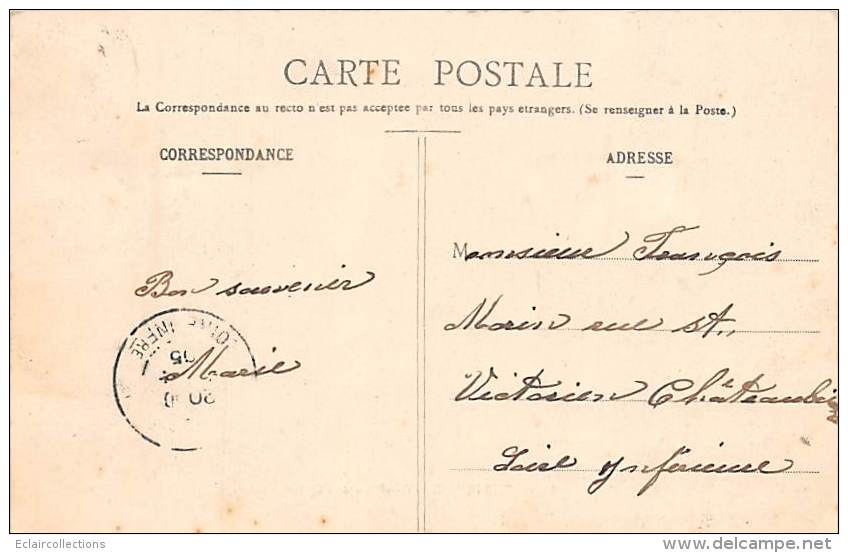 CARTE POSTALE
La Correspondance au recto n'est pas acceptee par tous les pays etrangers. (Se renseigner à la Poste.)
CORRESPONDANCE
ADRESSE
Bon souvenir
Marie
Monsieur François
Morin rue St
Victorien Châteaubri
Loire Inférieure
INFRE
05
Eclaircollections
www.delcampe.net